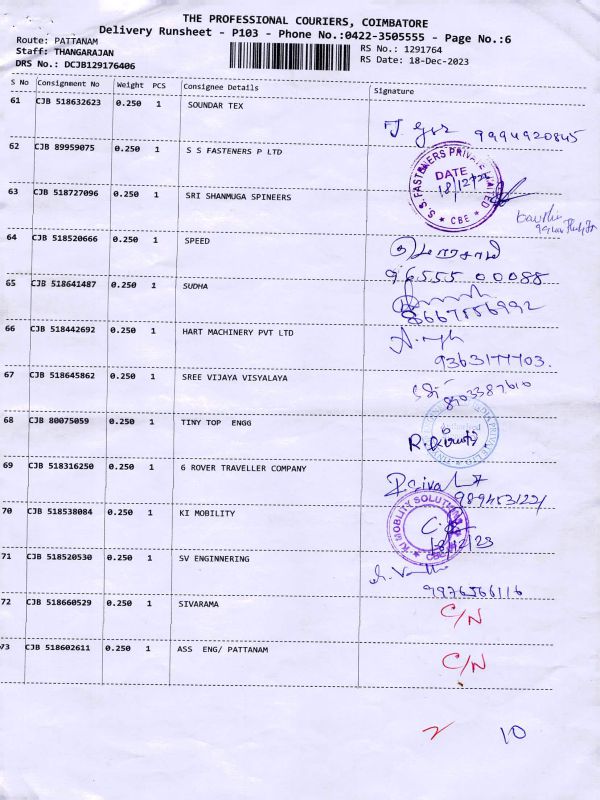 THE PROFESSIONAL COURIERS, COIMBATORE
Delivery Runsheet - P103 - Phone No.:0422-3505555 - Page No.:6
Route: PATTANAM
RS No.: 1291764
Staff: THANGARAJAN
RS Date: 18-Dec-2023
DRS No.: DCJB129176406
S No Consignment No Weight PCS Consignee Details Signature
61 CJB 518632623 0.250 1 SOUNDAR TEX
9994920845
62 CJB 89959075 0.250 1 S S FASTENERS P LTD
S.S. FASTENERS PRIVATE LIMITED
DATE
CBE
63 CJB 518727096 0.250 1 SRI SHANMUGA SPINEERS
64 CJB 518520666 0.250 1 SPEED
96555 00088
65 CJB 518641487 0.250 1 SUDHA
66 CJB 518442692 0.250 1 HART MACHINERY PVT LTD
67 CJB 518645862 0.250 1 SREE VIJAYA VISYALAYA
68 CJB 80075059 0.250 1 TINY TOP ENGG
69 CJB 518316250 0.250 1 6 ROVER TRAVELLER COMPANY
70 CJB 518538084 0.250 1 KI MOBILITY
KI MOBLITY SOLUTIONS
18/12/23
71 CJB 518520530 0.250 1 SV ENGINNERING
9976566116
72 CJB 518660529 0.250 1 SIVARAMA
C/N
73 CJB 518602611 0.250 1 ASS ENG/ PATTANAM
C/N
2 10